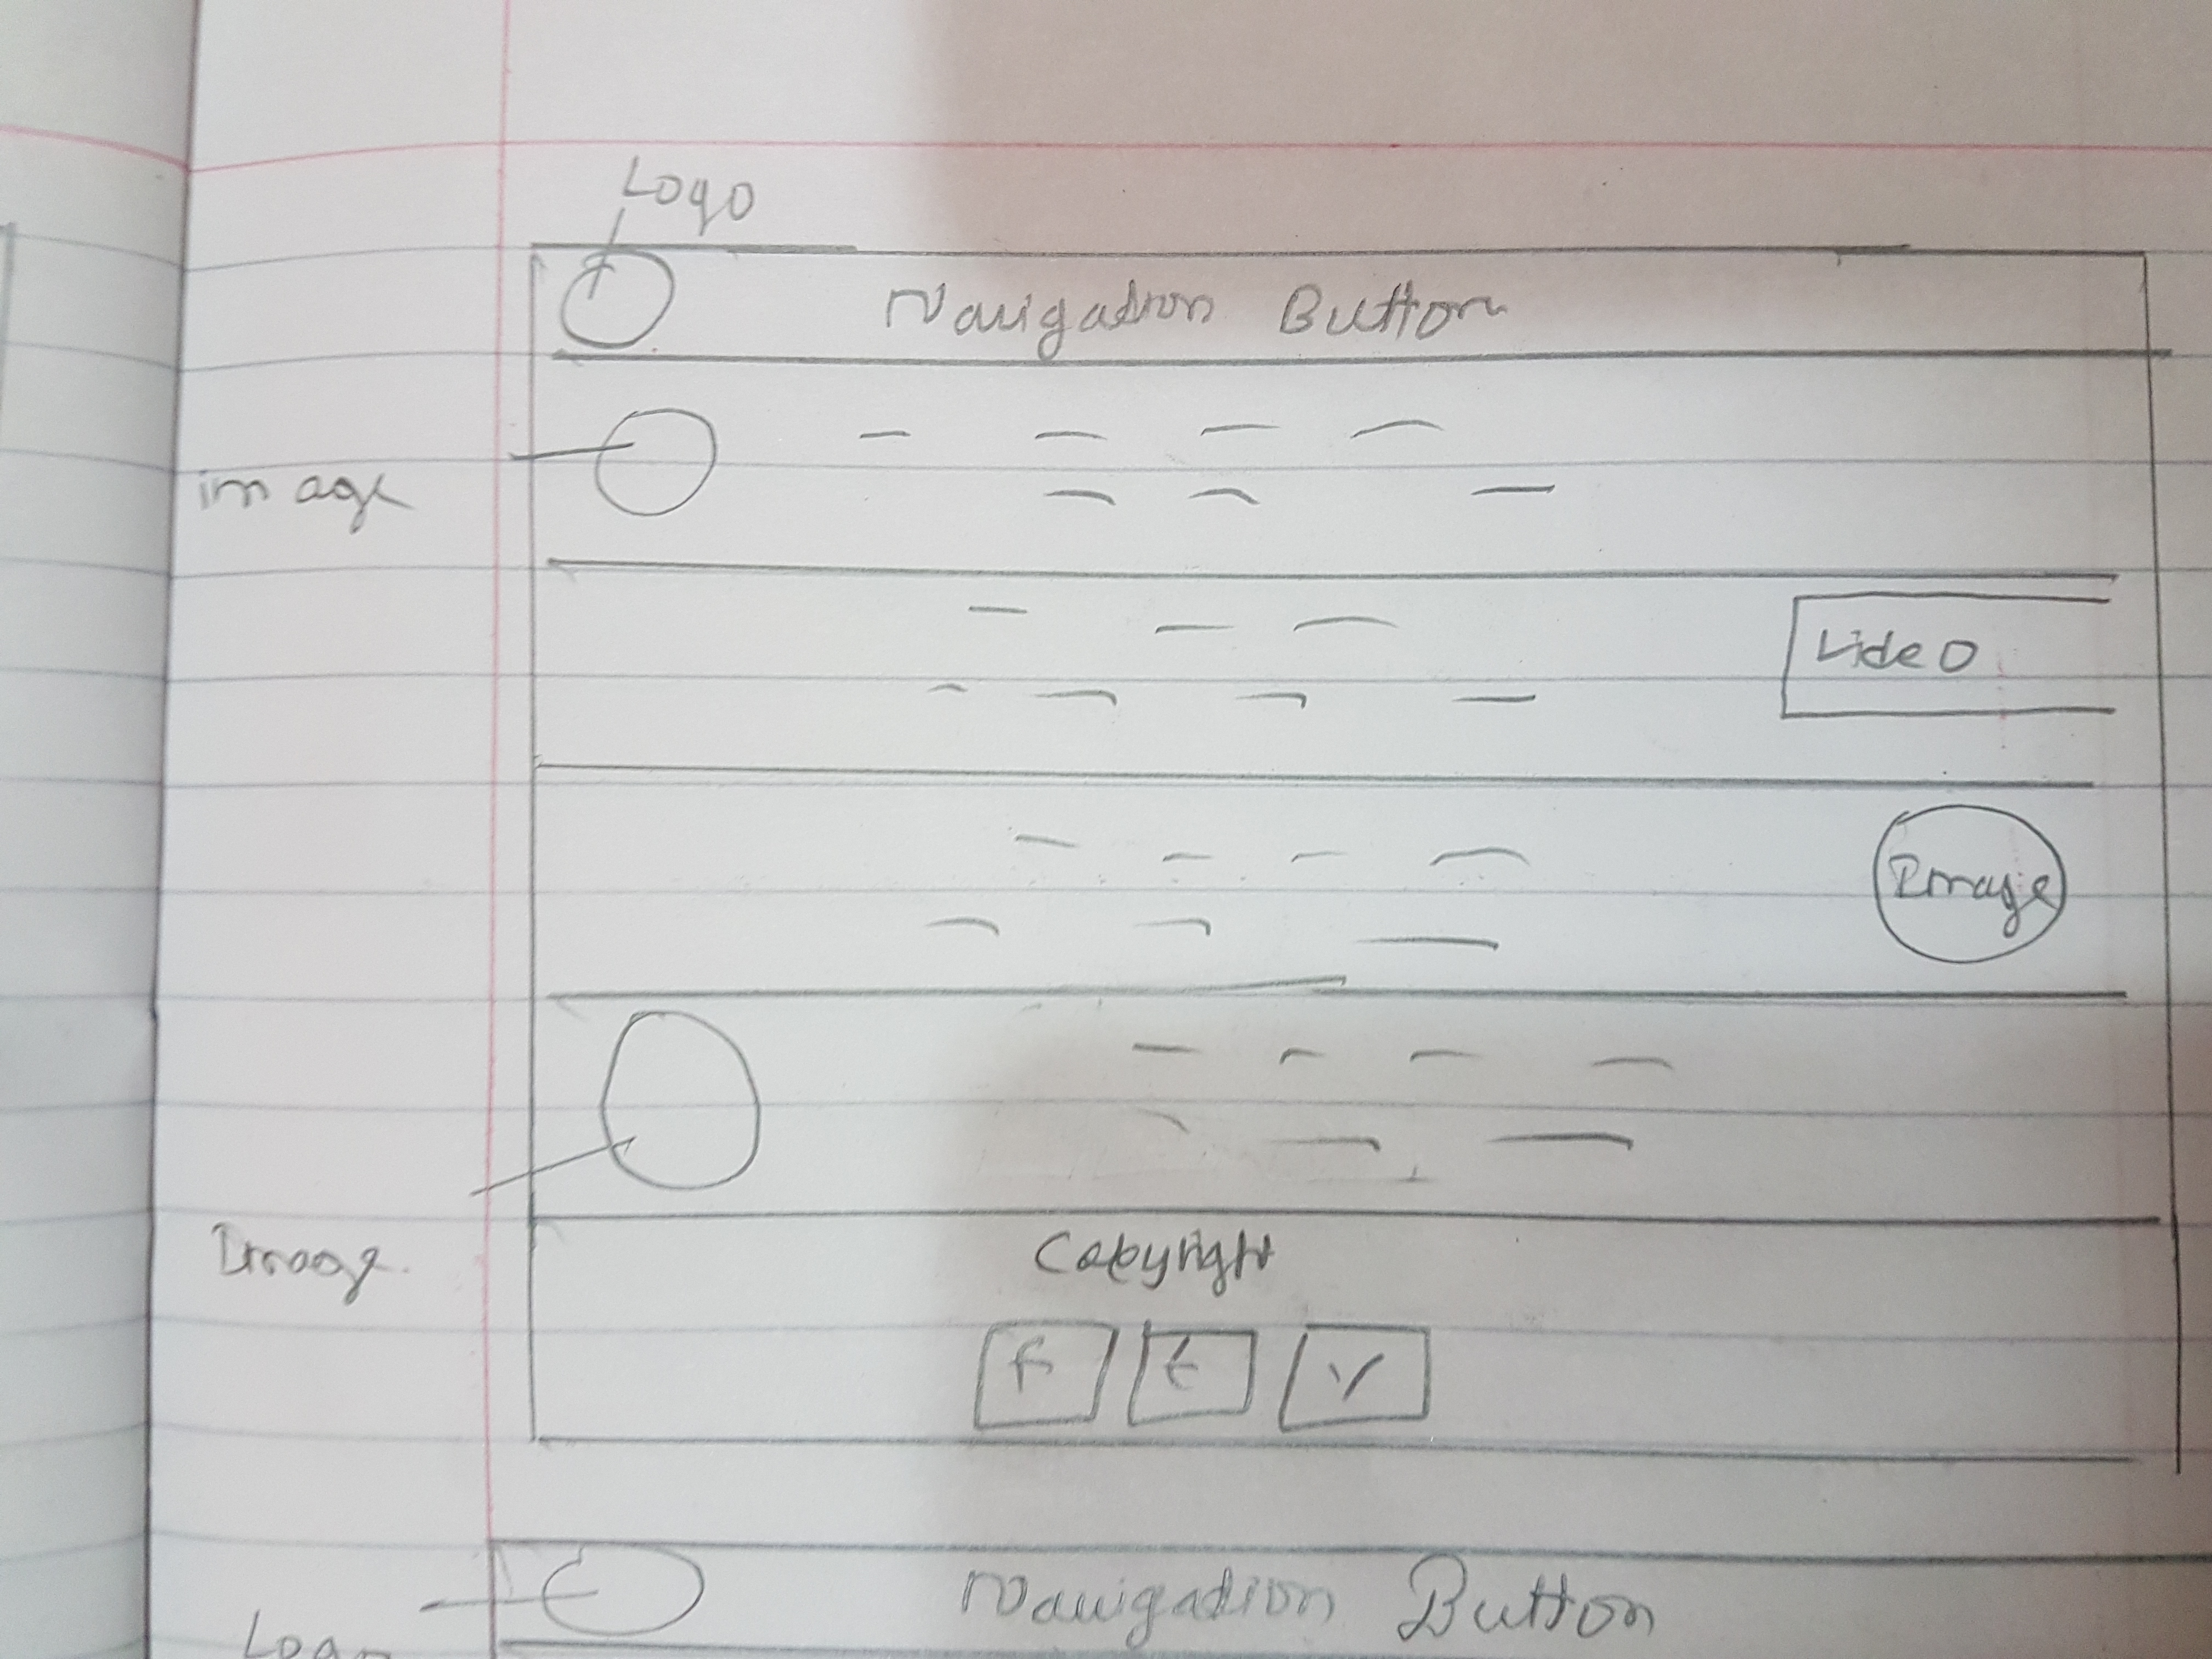 Logo
Navigation Button
image
Video
Image
Image
Copyright
F t Y
Navigation Button
Logo